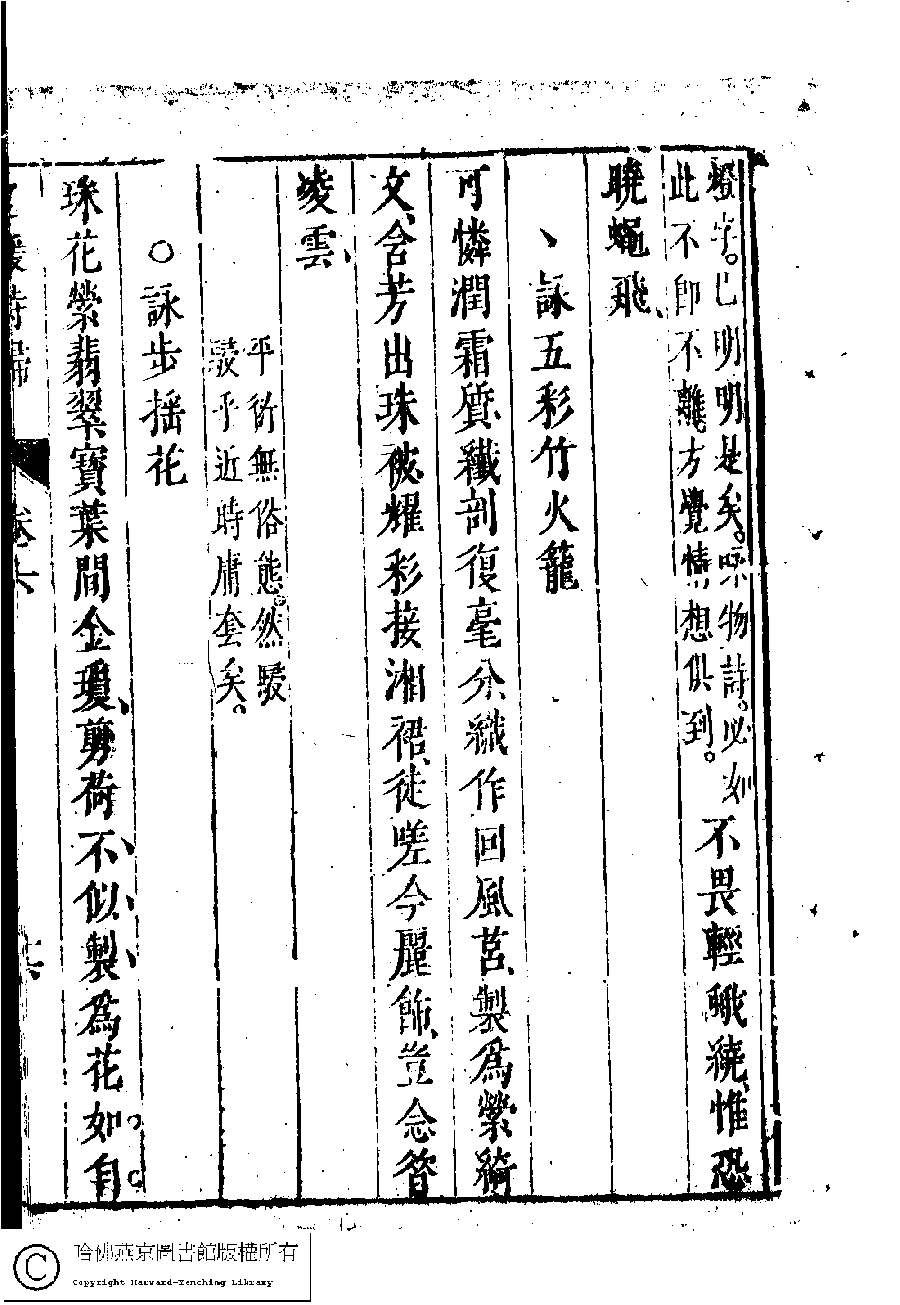 燈字。已明明是矣。咏物詩。必如
此不即不離方覺情想俱到。
不畏輕蛾繞、惟恐
曉蠅飛、
、詠五彩竹火籠
可憐潤霜質纖剖復毫分織作回風苣、製為縈綺
文、含芳出珠被耀彩接湘裙、徒嗟今麗飾、豈念昔
凌雲、
平衍無俗態。然駸
駸乎近時庸套矣。
○詠步搖花
珠花縈翡翠寶葉間金瓊、剪荷不似製為花如自
媛詩歸
卷六
哈佛燕京圖書館版權所有
Copyright Harvard-Yenching Library